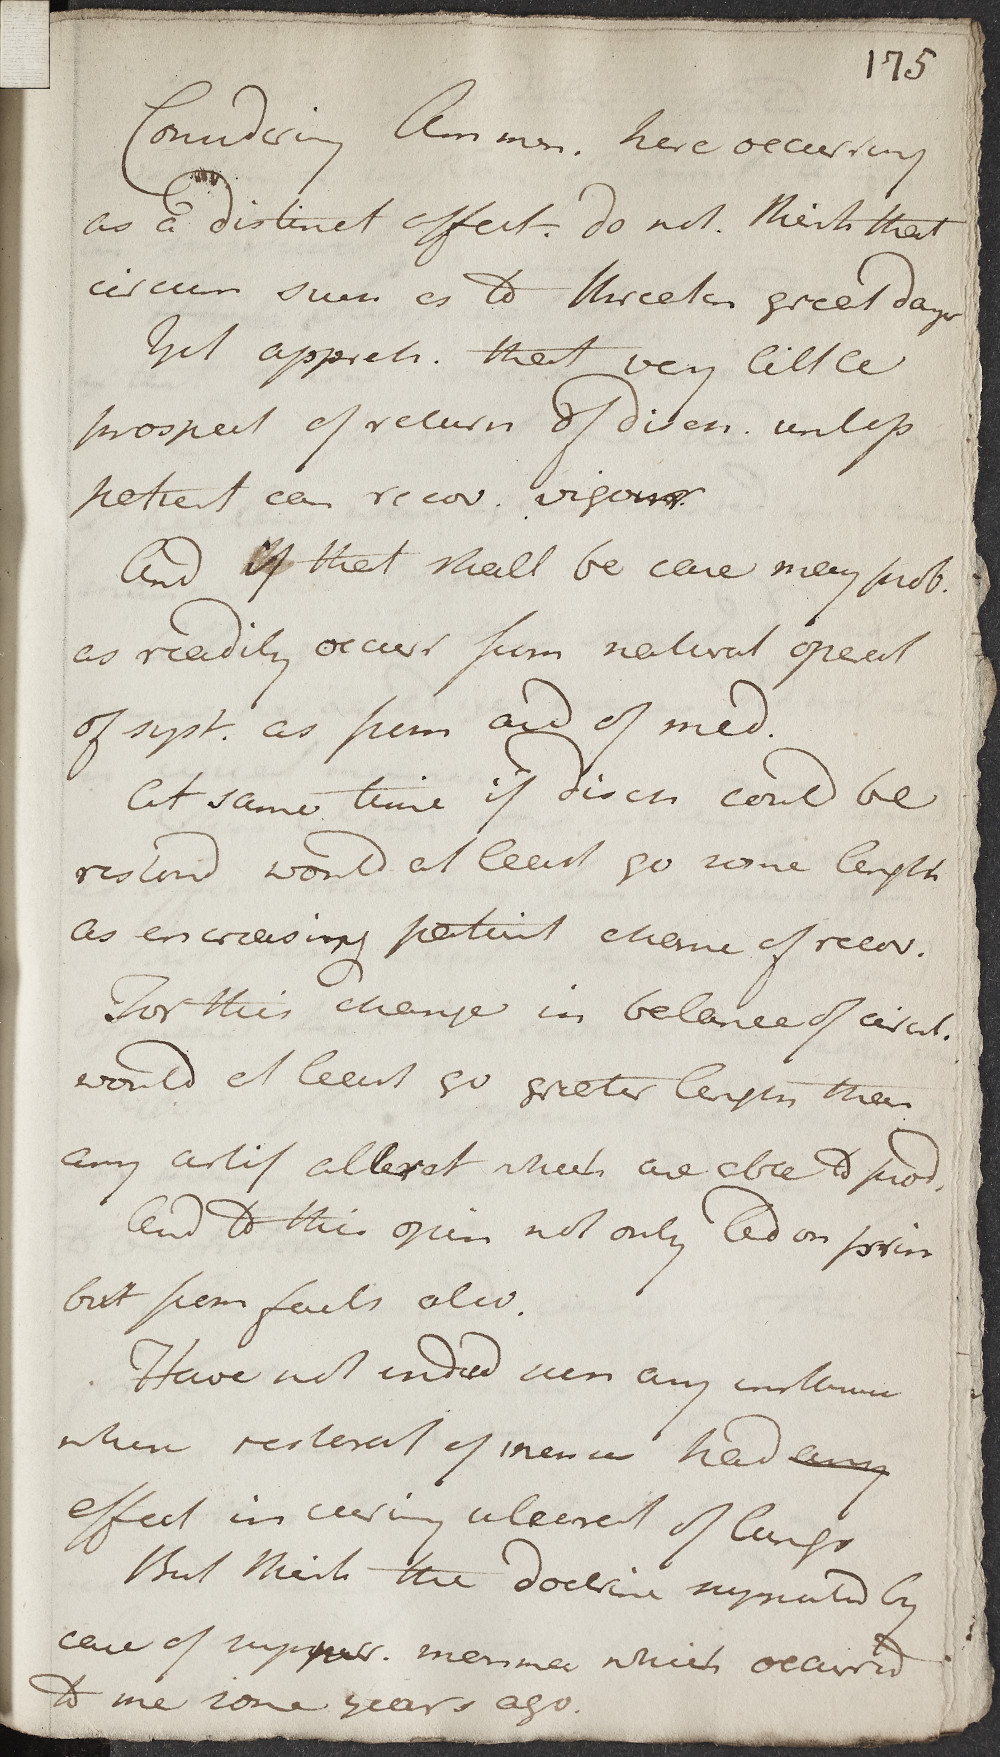 175
Considering Amen. here occurring
as a distinct effect. do not. think that
circum seem as to threaten great dager
Yet appreh. that very little
prospect of return of disch. unless
patient can recov. vigour.
And if that shall be case may prob.
as readily occurr from natural operat
of syst. as from aid of med.
At same time if disch could be
restord would at least go some length
as encreasing patient chance of recov.
For this change in balance of circul.
would at least go greater length than
any artif alterat which are able to prod.
And to this opin not only led on prin
but from facts also.
Have not indeed seen any instance
where restorat of mense had any
effect in curing ulcerat of lungs
But think the doctrine supported by
case of suppr. mensma which occurrd
to me some years ago.